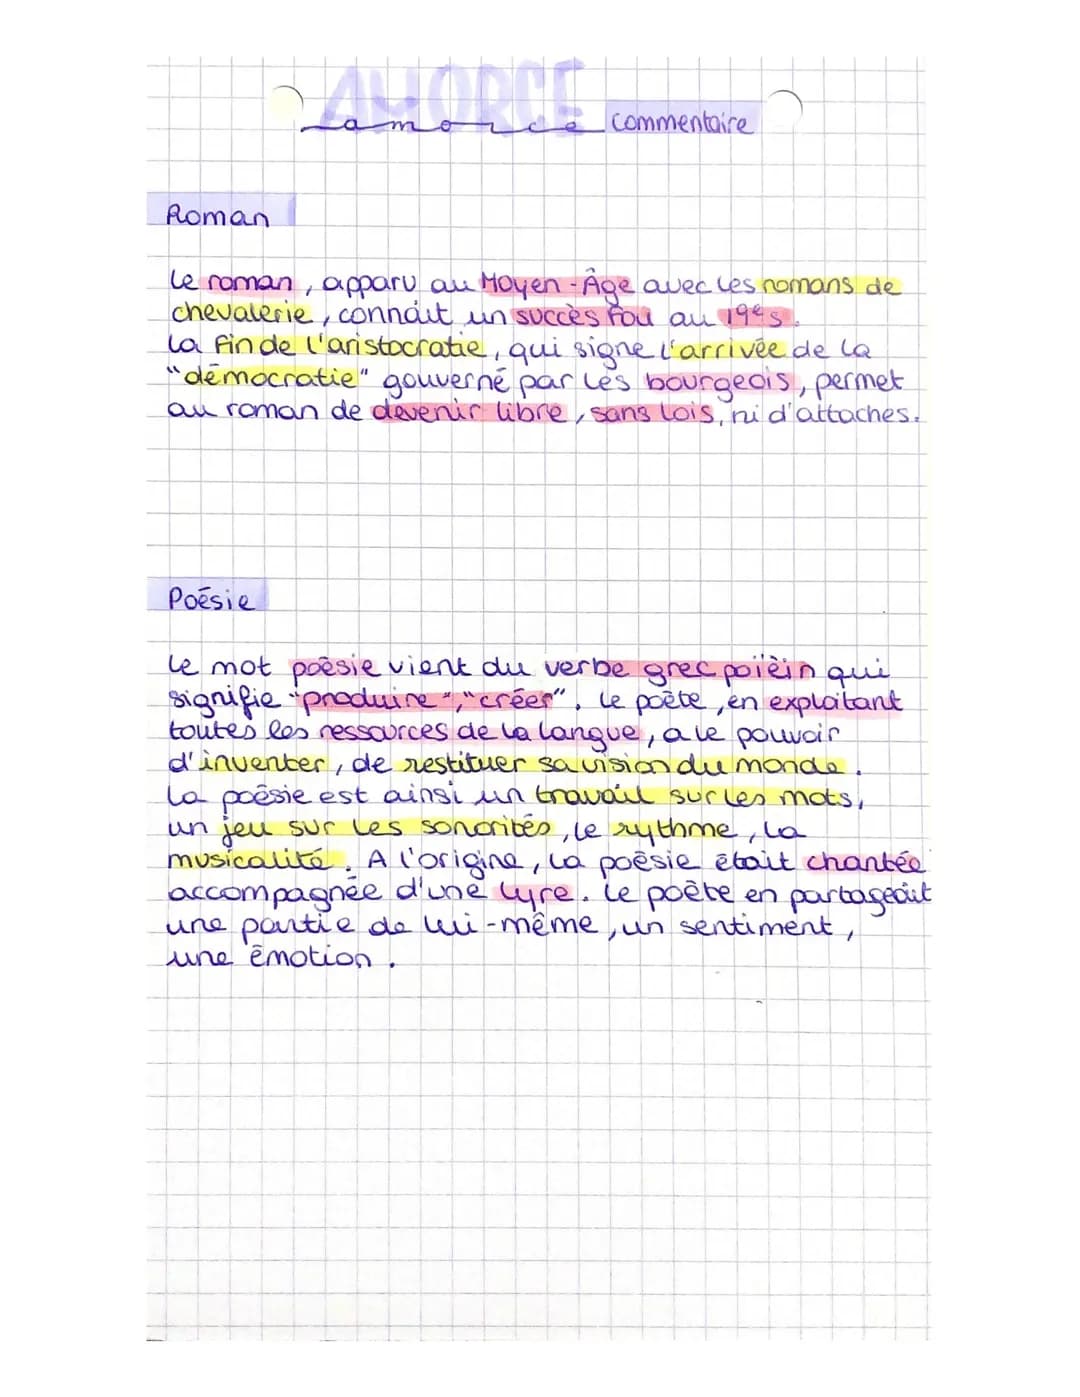 AMORCE
amorce commentaire
Roman
Le roman, apparu au Moyen-Âge avec les romans de
chevalerie, connaît un succès fou au 19es.
La fin de l'aristocratie, qui signe l'arrivée de la
"démocratie" gouverné par les bourgeois, permet
au roman de devenir libre, sans lois, ni d'attaches.
Poésie
Le mot poèsie vient du verbe grec poïèin qui
signifie "produire", "créer". Le poète, en exploitant
toutes les ressources de la langue, a le pouvoir
d'inventer, de restituer sa vision du monde.
La poésie est ainsi un travail sur les mots,
un jeu sur les sonorités, le rythme, la
musicalité. A l'origine, la poésie était chantée
accompagnée d'une lyre. Le poète en partageait
une partie de lui-même, un sentiment,
une émotion.